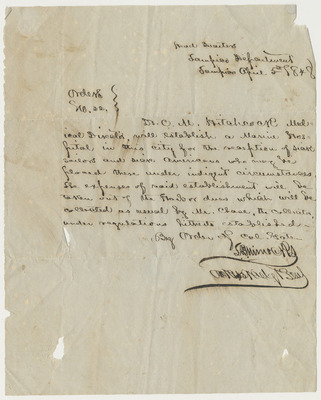 Head Quarters
Tampico Department
Tampico April 5th 1848
Orders
No. 22.
Dr. C. M. Hitchcock, Med-
ical Director, will establish a Marine Hos-
pital in this city for the reception of sick
sailors and sick Americans who may be
placed there under indigent circumstances.
The expenses of said establishment will be
taken out of the Harbor dues which will be
collected as usual by Mr. Chase, the Collector,
under regulations hitherto established.
By Order of Col. Gates